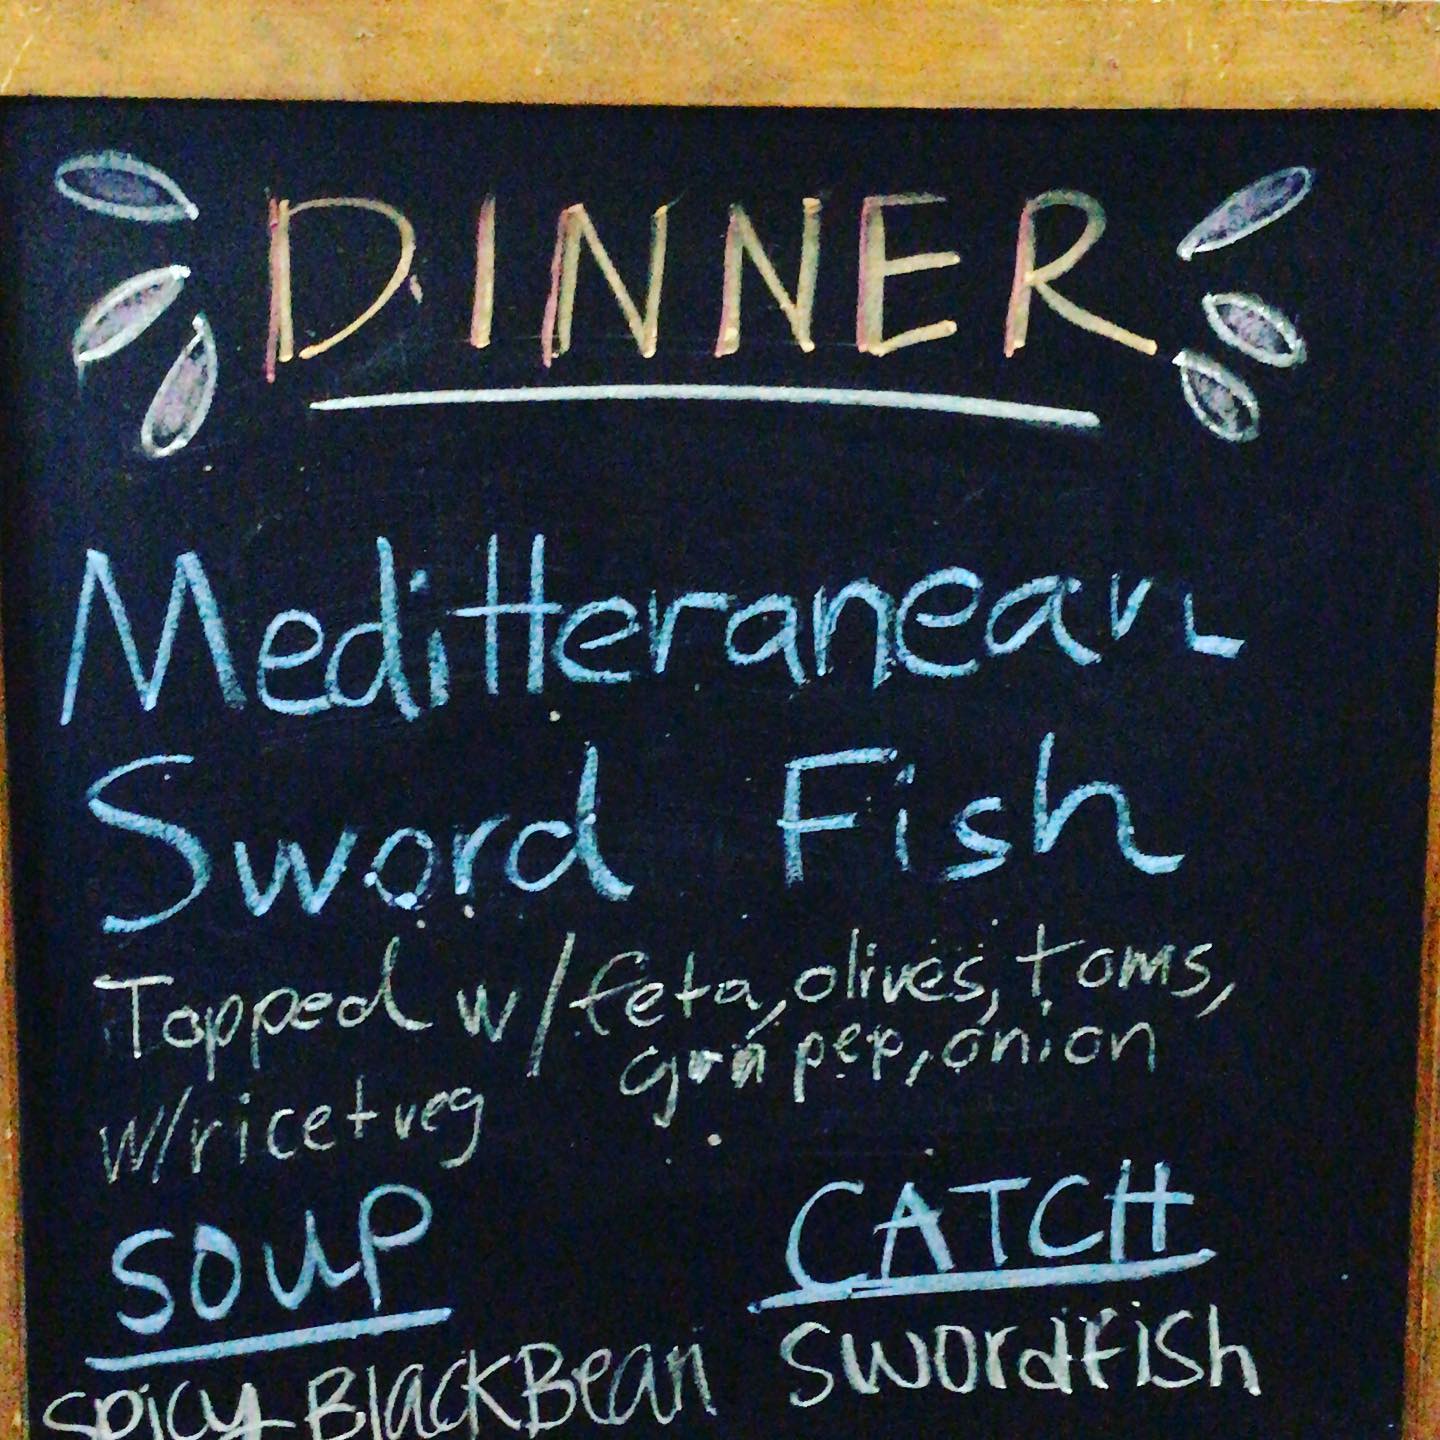 DINNER
Meditteranean
Sword Fish
Topped w/feta, olives, toms,
grn pep, onion
w/rice+veg
SOUP
CATCH
Spicy BlackBean
Swordfish